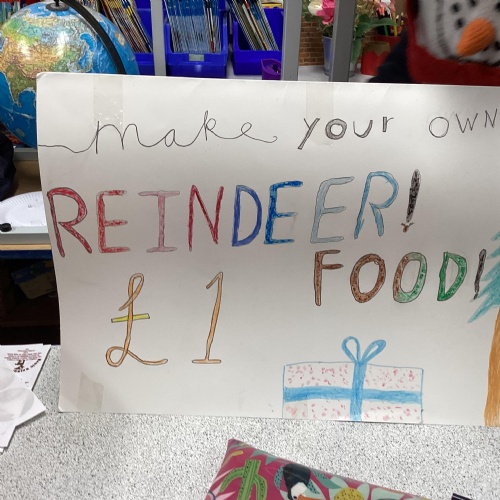 make your OWN
REINDEER!
FOOD!
£1